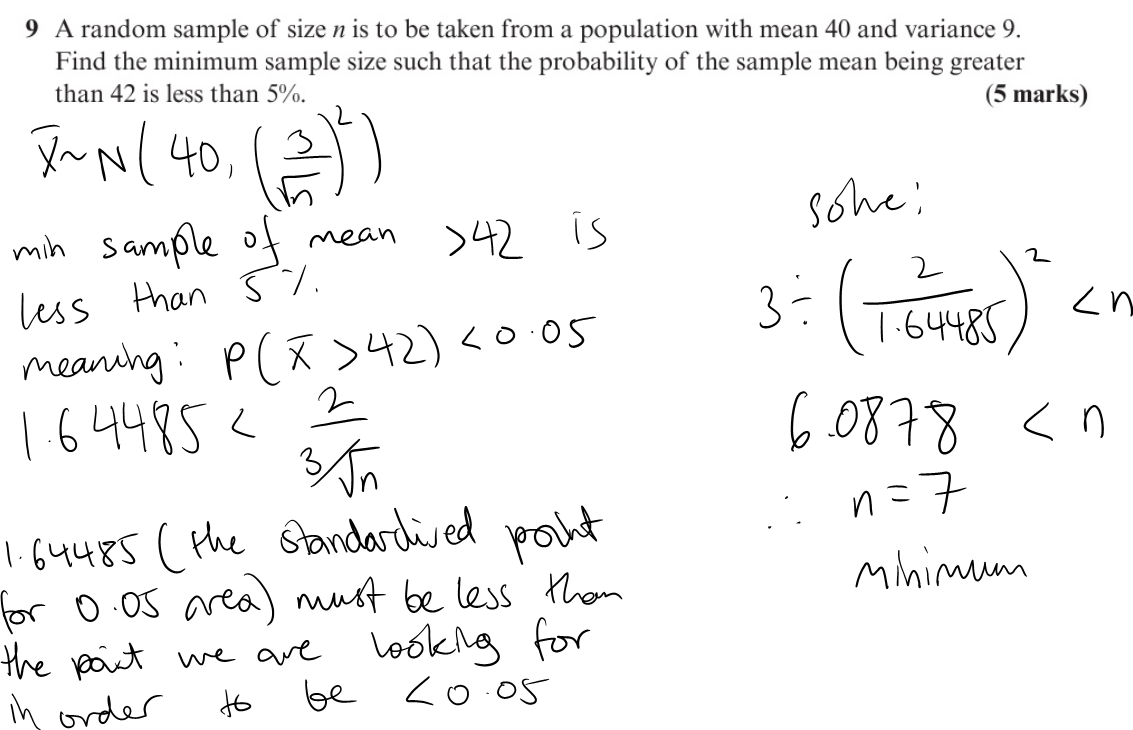 9 A random sample of size n is to be taken from a population with mean 40 and variance 9.
Find the minimum sample size such that the probability of the sample mean being greater
than 42 is less than 5%.
(5 marks)
X̄~N(40, (3/√n)²)
min sample of mean >42 is
less than 5%.
meaning: P(x̄ >42) <0.05
1.64485 < 2/(3/√n)
1.64485 (the standardised point
for 0.05 area) must be less than
the point we are looking for
in order to be <0.05
solve:
3 ÷ (2/1.64485)² < n
6.0878 < n
∴ n = 7
minimum